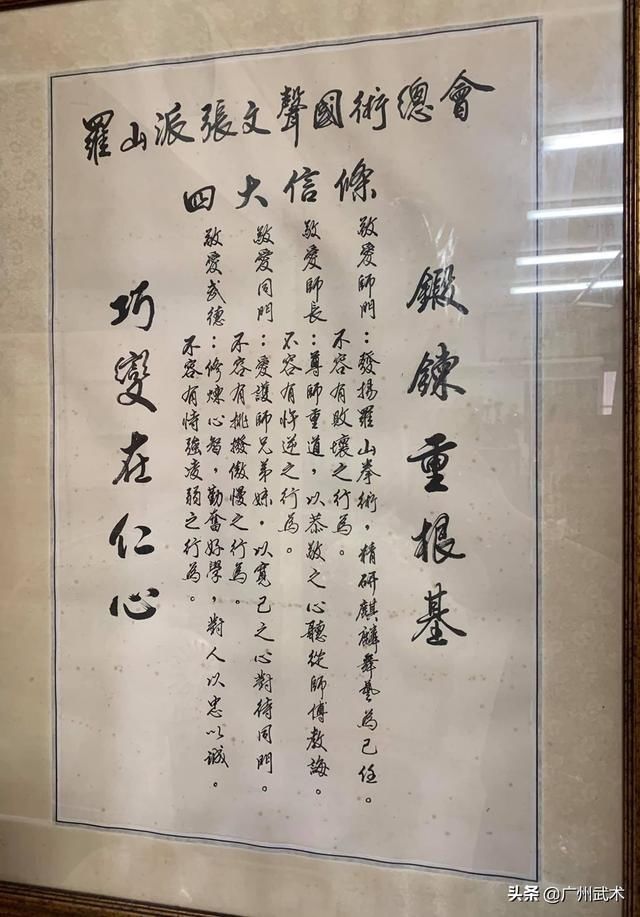 羅山派張文聲國術總會
四大信條
鍛鍊重根基
敬愛師門：發揚羅山拳術，精研麒麟舞藝為己任。
不容有敗壞之行為。
敬愛師長：尊師重道，以恭敬之心聽從師博教誨。
不容有忤逆之行為。
敬愛同門：愛護師兄弟妹，以寬己之心對待同門。
不容有挑撥傲慢之行為。
敬愛武德：修煉心智，勤奮好學，對人以忠以誠。
不容有恃強凌弱之行為。
巧變在仁心
头条 @广州武术